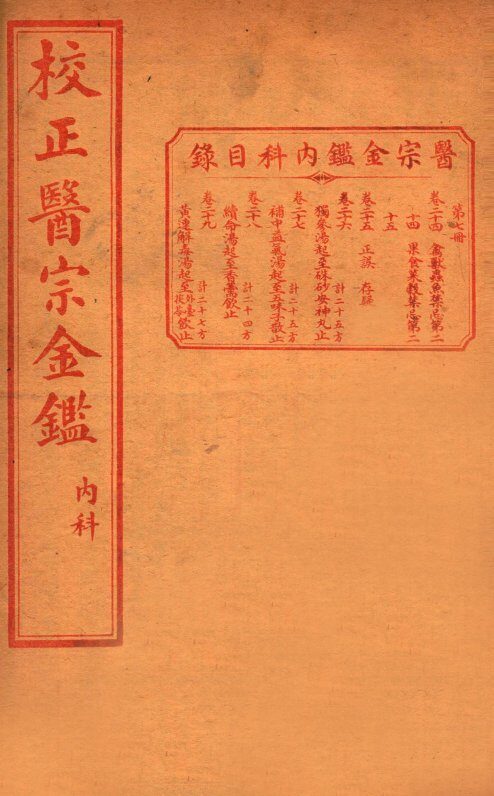 校正醫宗金鑑
内科
醫宗金鑑内科目錄
第七冊
卷二十四 禽獸蟲魚禁忌第二
十四 果食菜穀禁忌第二
十五
卷二十五 正誤 存疑
卷二十六 計二十五方
獨參湯起至硃砂安神丸止
卷二十七 計二十五方
補中益氣湯起至五味子散止
卷二十八 計二十四方
續命湯起至香薷飲止
卷二十九 計二十七方
黃連解毒湯起至外臺茯苓飲止